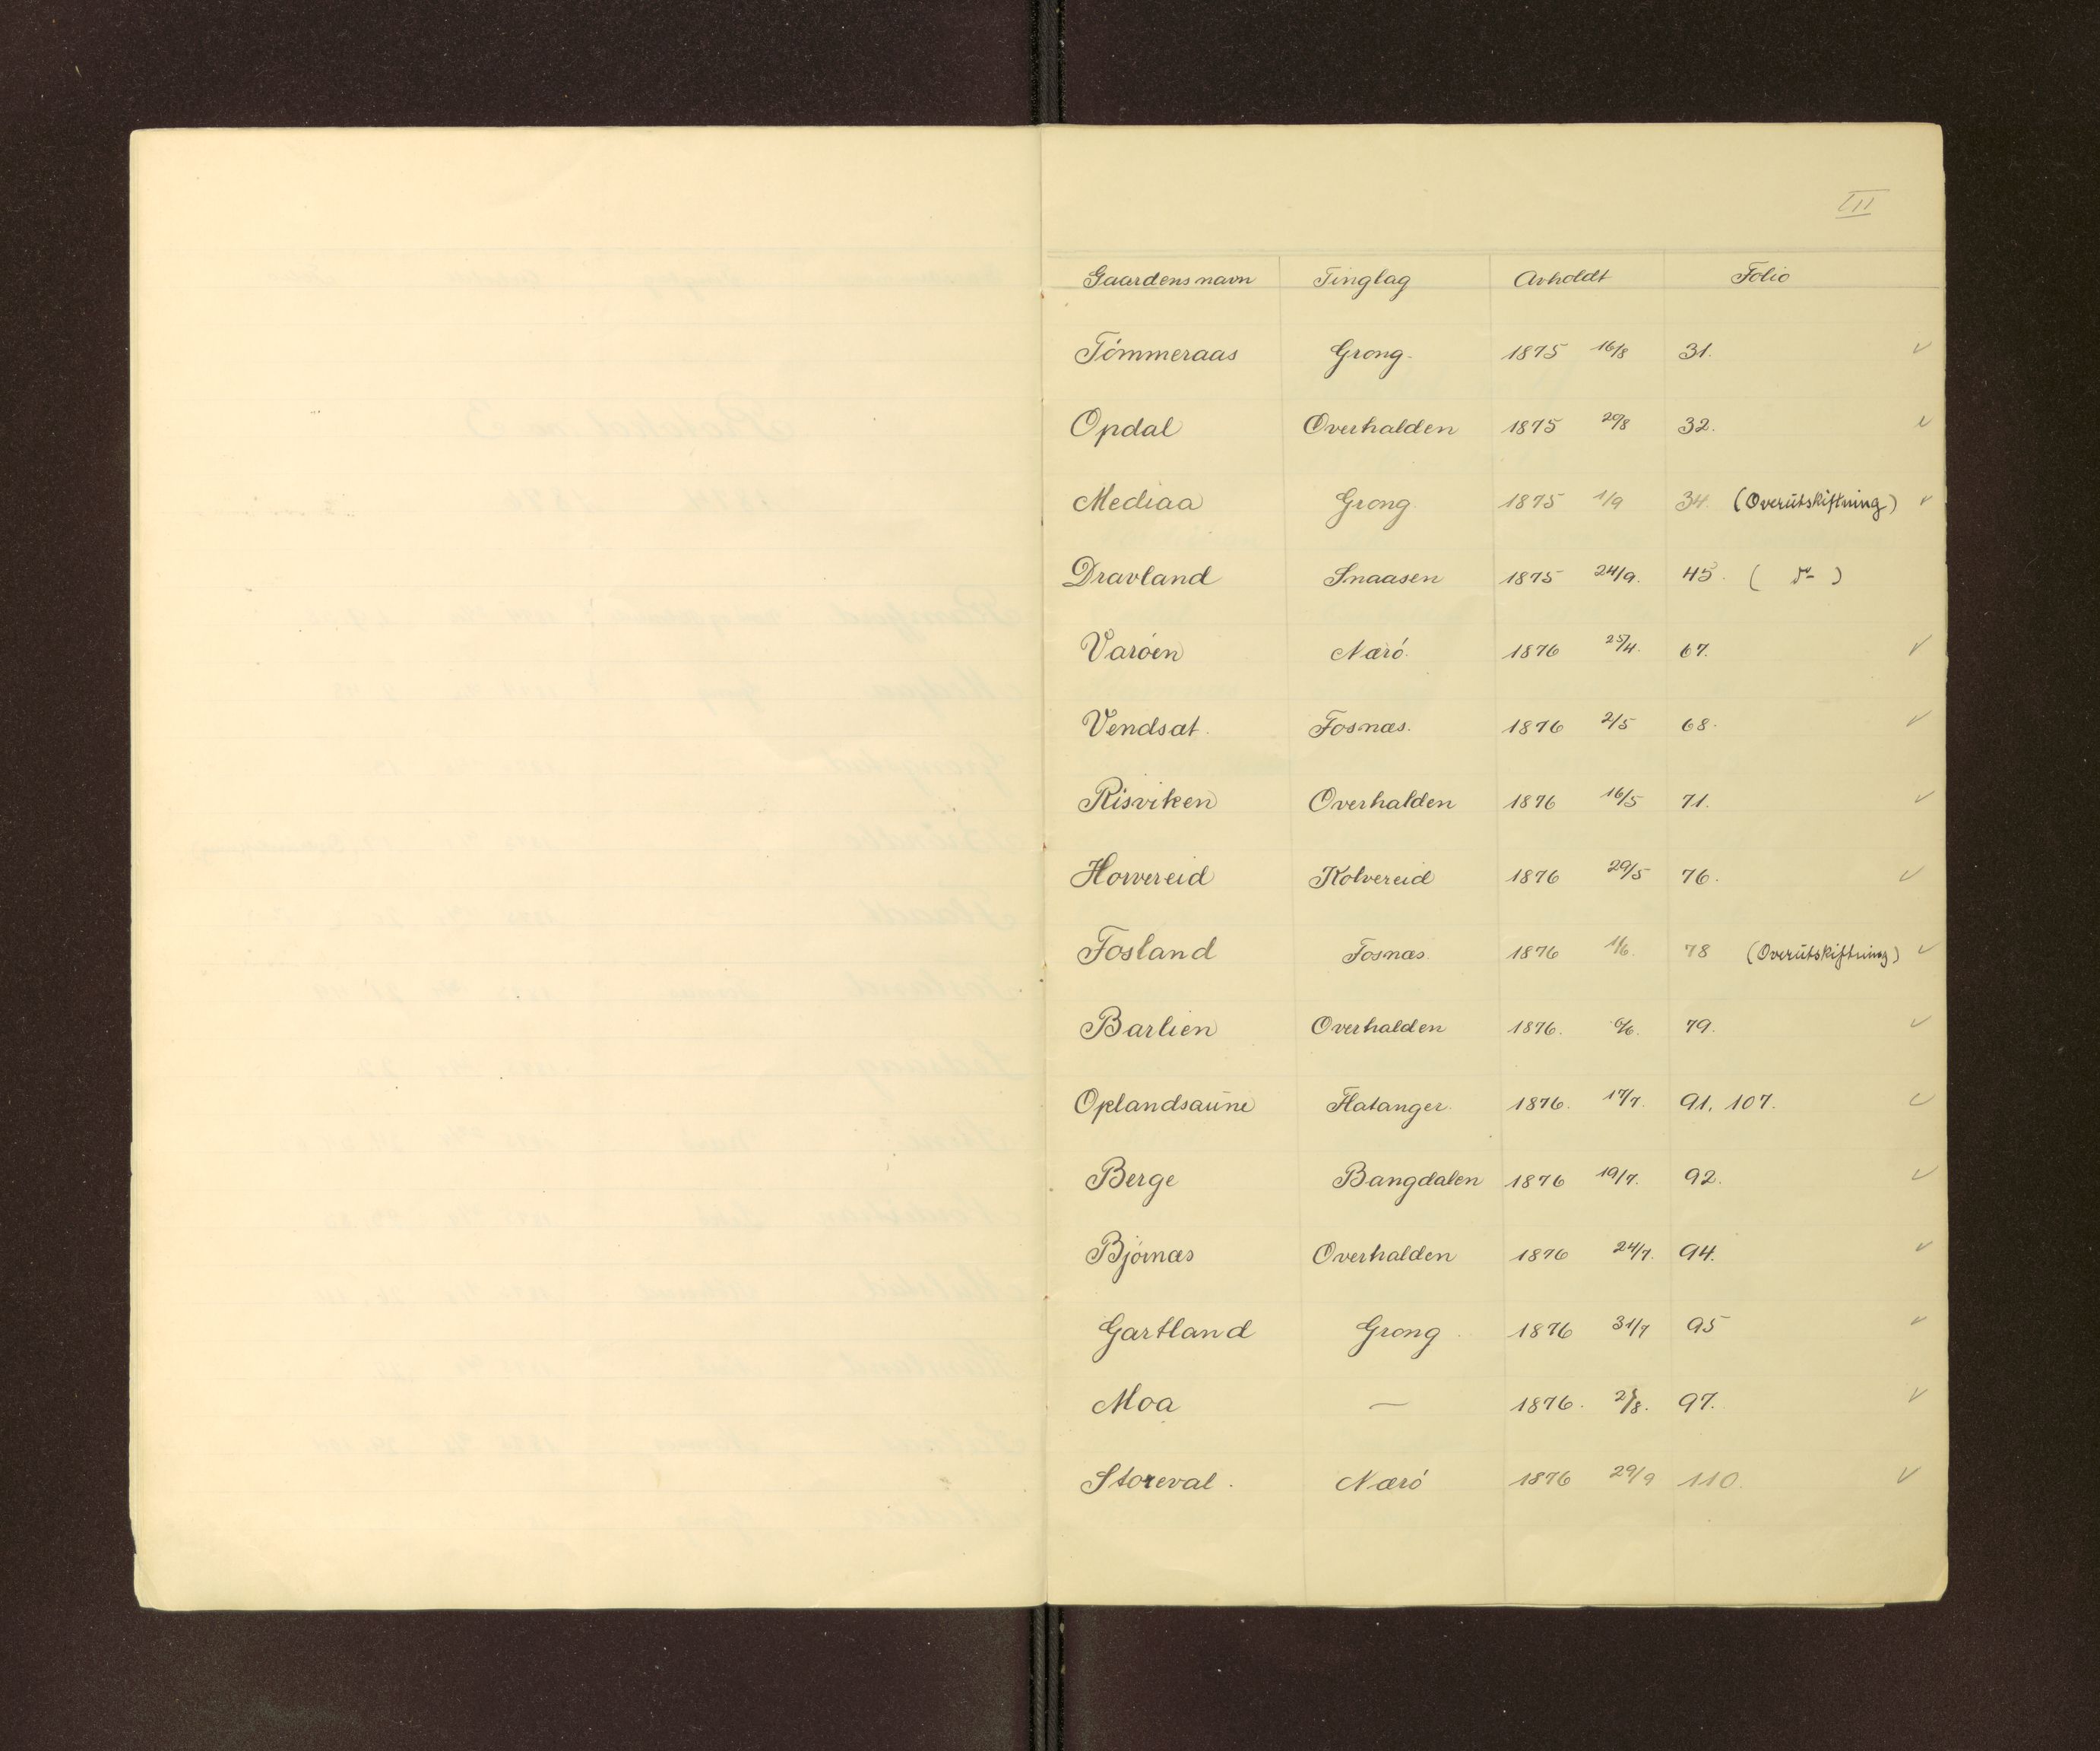 III
Gaardens navn Tinglag Avholdt Folio
Tómmeraas Grong. 1875 16/8 31. ✓
Opdal Overhalden 1875 20/8 32. ✓
Mediaa Grong 1875 1/9 34. (Overutskiftning) ✓
Dravland Snaasen 1875 24/9. 45. ( do )
Varóen Næró. 1876 25/4. 67. ✓
Vendsæt. Fosnæs. 1876 2/5 68. ✓
Risviken Overhalden 1876 16/5 71. ✓
Horvereid Kolvereid 1876 29/5 76. ✓
Fosland Fosnæs. 1876 1/6. 78 (Overutskiftning) ✓
Barlien Overhalden 1876. 6/6. 79. ✓
Oplandsaune Flatanger. 1876. 17/7. 91. 107. ✓
Berge Bangdalen 1876 19/7. 92. ✓
Bjórnæs Overhalden 1876 24/7. 94. ✓
Gartland Grong. 1876 31/7 95 ✓
Moa — 1876. 97. ✓
Storeval. Næró 1876 29/9 110. ✓